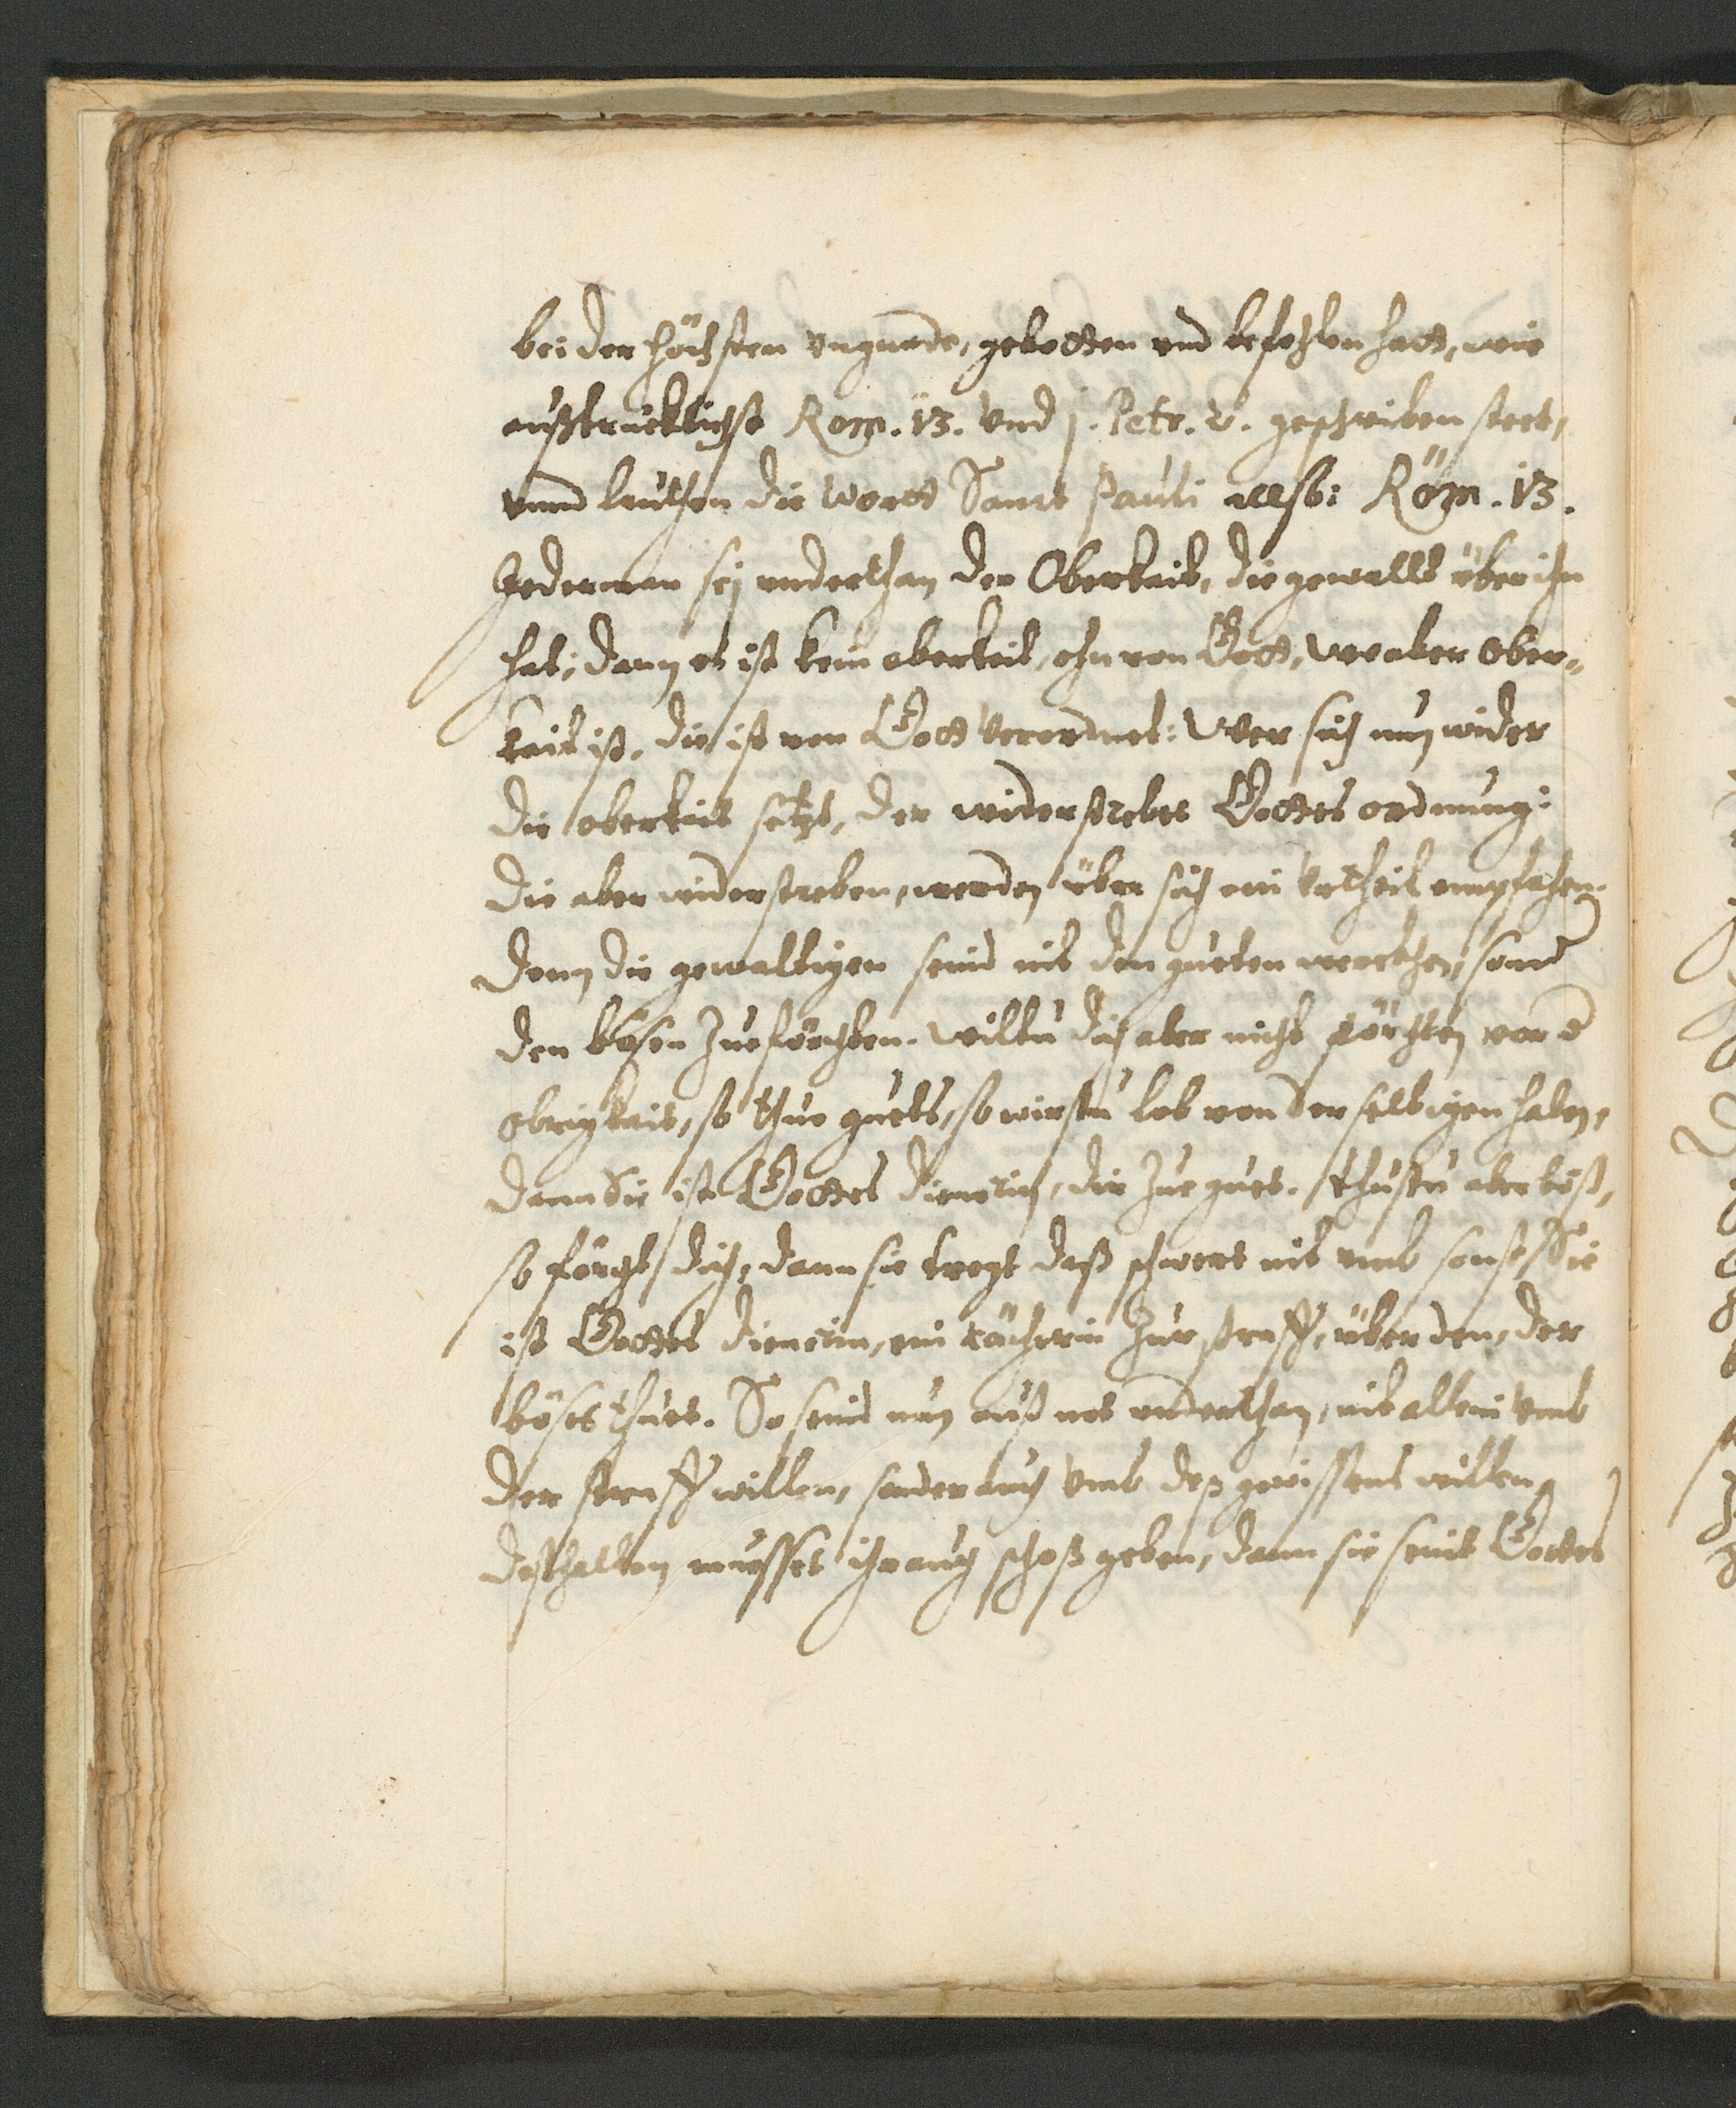 bei der höchsten vngnade, gebotten vnd befohlen hatt, wie
außtrucklichst Rom. 13. Vnd j. Petr. 2. geschriben steet,
vnnd lauthen die Wortt Sanct Pauli allso: Röm. 13.
Jederman sej vnderthan der Oberkait, die gewallt über ihn
hat; dann es ist kein oberkeit, ohn von Gott, wo aber Ober„
kait ist, die ist von Gott Verordnet: Wer sich nun wider
die oberkait setzt, der widerstrebet Gottes ordnung:
die aber widerstreben, werden über sich ein Vrtheil empfahen.
Denn die gewaltigen seind nit den gueten werckhen, sond
den bösen Zue förchten. Wiltu dich aber nicht förchten vor d
obrigkait, so thue guets, so wirstu lob von der selbigen haben,
dann Sie ist Gottes dienerin, dir Zue guet. thustu aber böß,
so förcht dich, dann sie tregt daß schwert nit vmb sonst, Sie
ist Gottes dienerin, ein rächerin Zur straff, über den, der
böses thuet. So seind nun auß not vnderthan, nit allein Vmb
der straff willen, sonder auch Vmb deß gewissens willen,
deßhalben muesset ihr auch schoß geben, dann sie seind Gottes